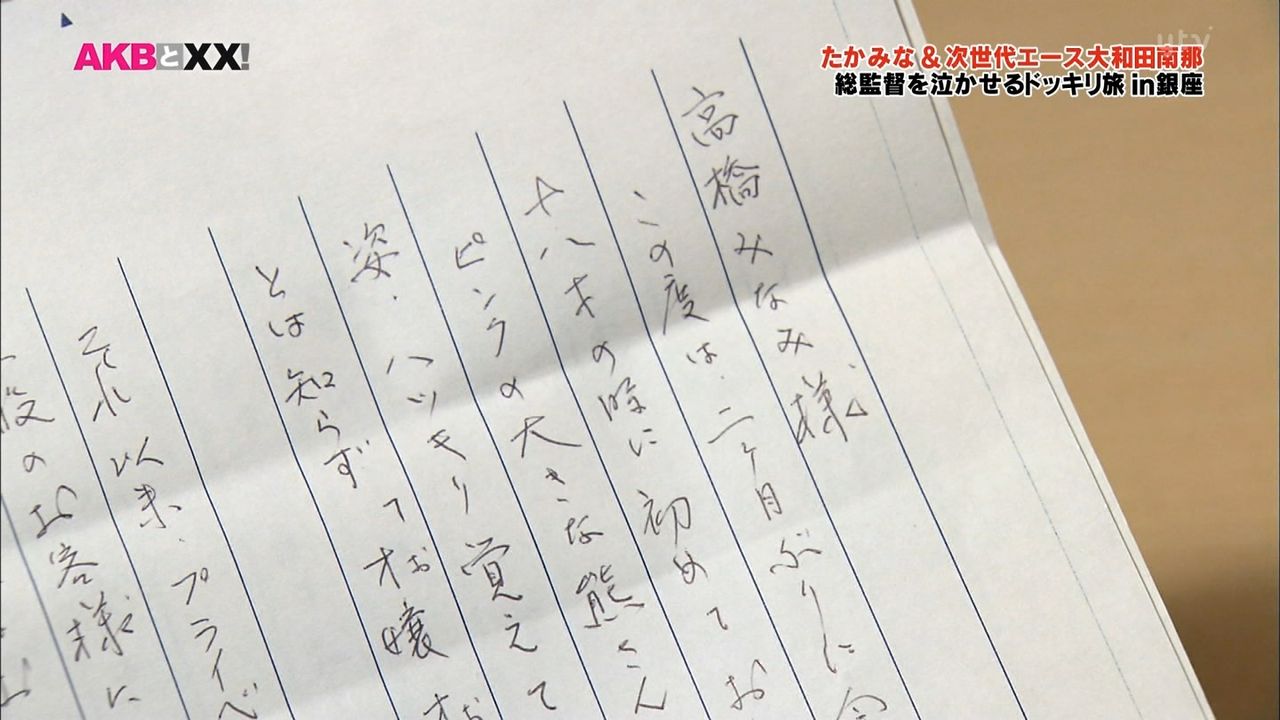 AKBとXX!
ytv
たかみな&次世代エース大和田南那
総監督を泣かせるドッキリ旅in銀座
高橋みなみ様
この度は、二ヶ月ぶりに会
十八才の時に初めてお
ピンクの大きな熊さん
姿、ハッキリ覚えて
とは知らず「お嬢お
それ以来、プライベ
役のお客様に